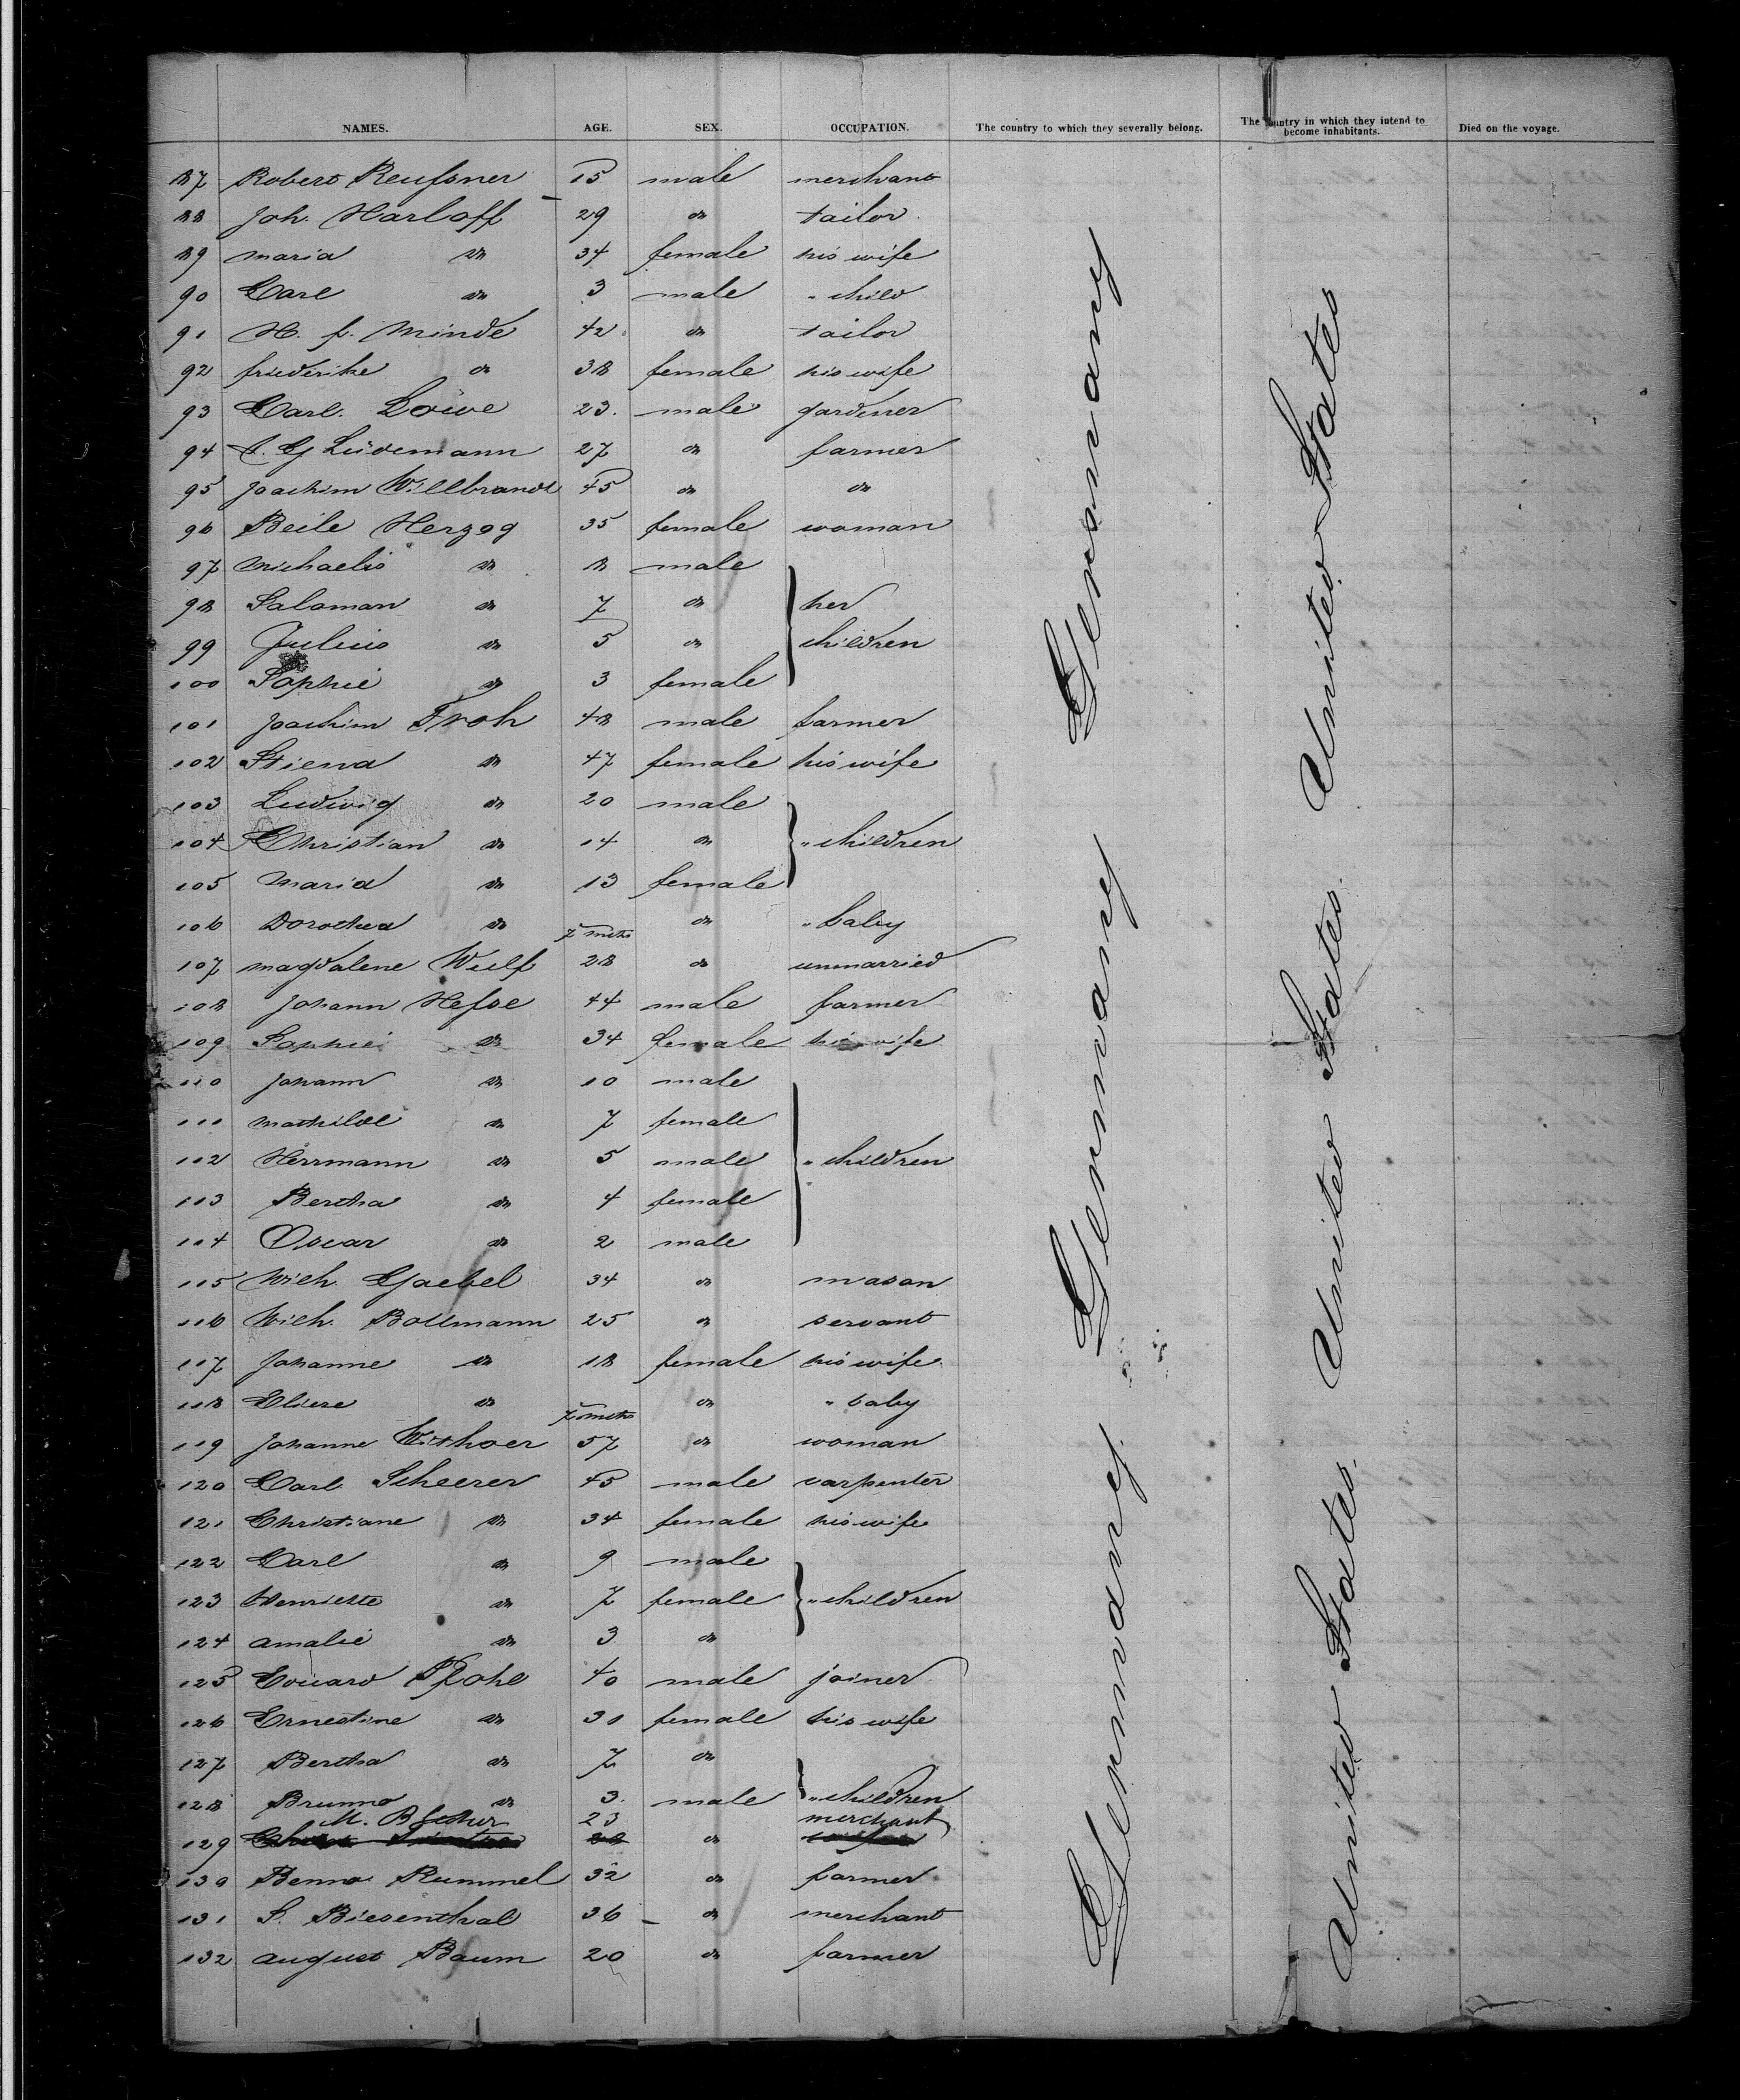 NAMES. AGE. SEX. OCCUPATION. The country to which they severally belong. The country in which they intend to become inhabitants. Died on the voyage.
87 Robert Reufsner 15 male merchant
88 Joh. Harloff 29 do tailor
89 maria do 34 female his wife
90 Carl do 3 male " child
91 H. f. Minde 42 do tailor
92 friederike do 38 female his wife
93 Carl. Löwe 23. male gardener
94 G Lüdemann 27 do farmer
95 Joachim Willbrandt 45 do do
96 Beile Herzog 35 female woman
97 Michaelis do 8 male
98 Salaman do 7 do her
99 Julius do 5 do children
100 Sophie do 3 female
101 Joachim Froh 48 male farmer
102 Stiena do 47 female his wife
103 Ludwig do 20 male
104 Christian do 14 do " children
105 Maria do 13 female
106 Dorothea do 7 mths do " baby
107 magdalene Wulf 28 do unmarried
108 Johann Hefse 44 male farmer
109 Sophie do 34 female his wife
110 Johann do 10 male
111 mathilde do 7 female
112 Herrmann do 5 male " children
113 Bertha do 4 female
114 Oscar do 2 male
115 Wilh. Gaebel 34 do mason
116 Wilh. Bollmann 25 do servant
117 Johanne do 18 female his wife
118 Eliese do 7 mths do " baby
119 Johanne Withoer 57 do woman
120 Carl Scheerer 45 male carpenter
121 Christiane do 34 female his wife
122 Carl do 9 male
123 Henriette do 7 female " children
124 amalie do 3 do
125 Eduard Pohl 40 male joiner
126 Ernestine do 31 female his wife
127 Bertha do 7 do
128 Brunno do 3. male " children
M. 23 merchant
129 do
130 Benno Rummel 32 do farmer
131 S. Biesenthal 36 do merchant
132 august Baum 20 do farmer
Germany
Germany
Germany
United States
United States.
United States.